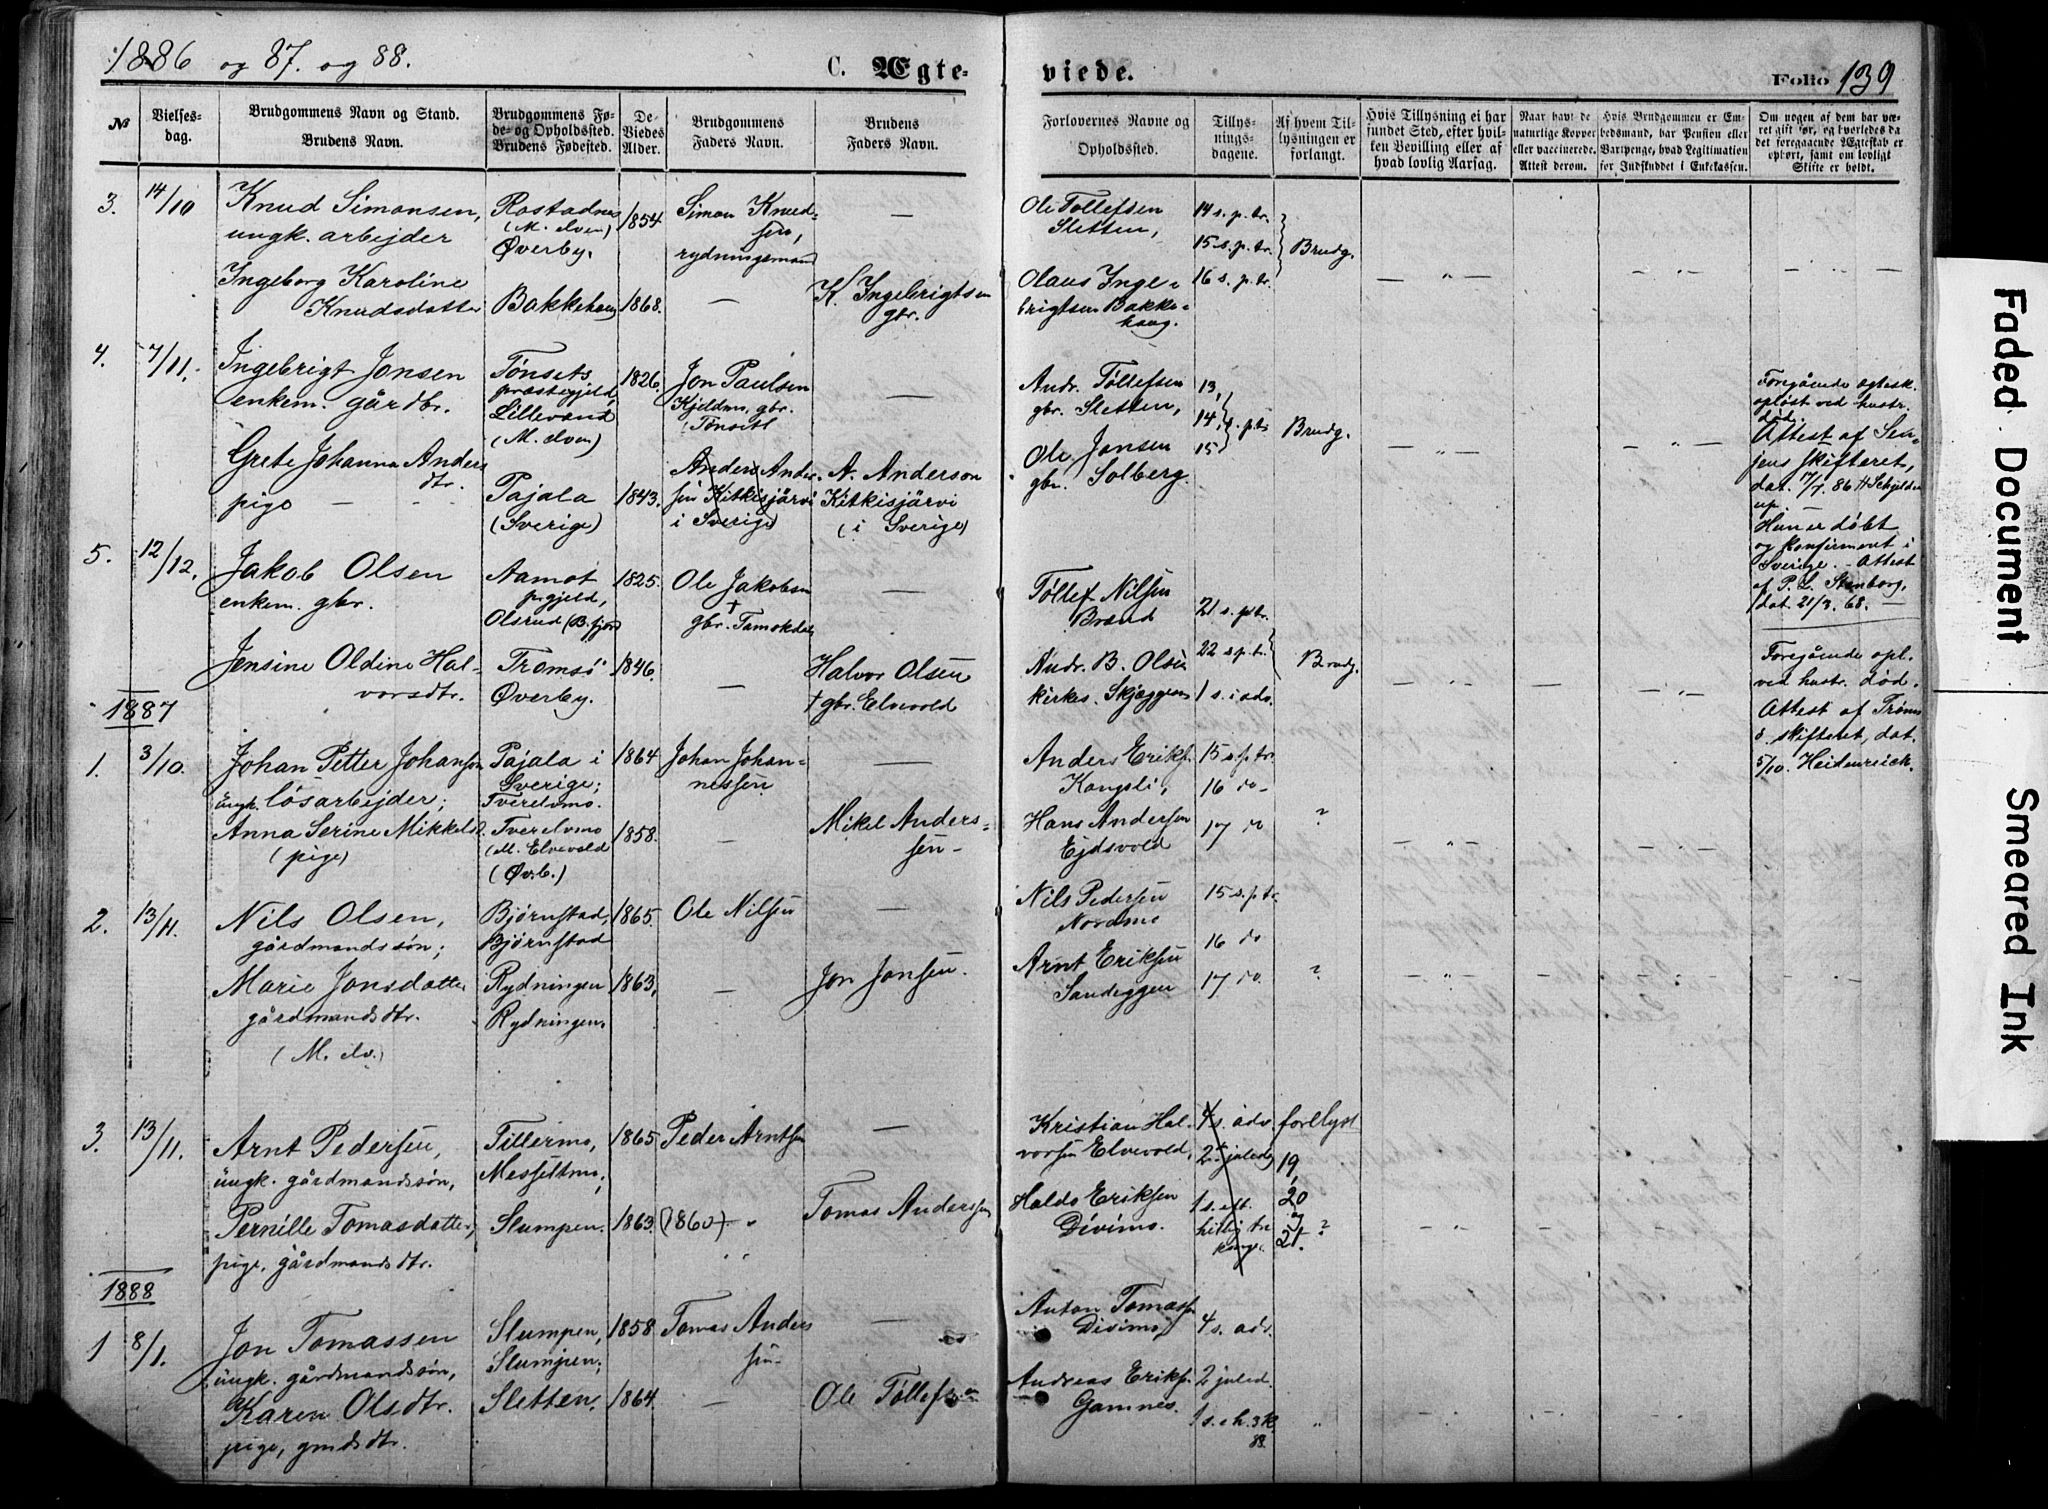 1886 og 87. og 88.
C. Ægte-
viede.
Folio 139
№
Vielses-
dag.
Brudgommens Navn og Stand.
Brudens Navn.
Brudgommens Fø-
de- og Opholdssted.
Brudens Fødested.
De
Viedes
Alder.
Brudgommens
Faders Navn.
Brudens
Faders Navn.
Forlovernes Navne og
Opholdssted.
Tillys-
nings-
dagene.
Af hvem Til-
lysningen er
forlangt.
Hvis Tillysning ei har
fundet Sted, efter hvil-
ken Bevilling eller af
hvad lovlig Aarsag.
Naar havt de
naturlige Kopper
eller vaccinerede.
Attest derom.
Hvis Brudgommen er Em-
bedsmand, har Pension eller
Vartpenge, hvad Legitimation
for Indskuddet i Enkekassen.
Om nogen af dem har væ-
ret gift før, og hvorledes da
det foregaaende Ægteskab er
ophørt, samt om lovligt
Skifte er holdt.
3. 14/10
Knud Simonsen,
ungk. arbejder
Ingeborg Karoline
Knudsdatter
Rostadnes
(M. elven)
Øverby.
Bakkehaug
1854.
1868.
Simon Knud-
sen,
rydningsmand
—
—
K. Ingebrigtsen
gbr.
Ole Tollefsen
Sletten,
Olaus Inge-
brigtsen Bakke-
haug.
14 s. p. tr.
15 s. p. tr.
16 s. p. tr.
Brudg.
4. 7/11.
Ingebrigt Jonsen
enkem. gårdbr.
Grete Johanna Anders
dtr.
pige —
Tønsets
præstegjeld,
Lillevand
(M. elven)
Pajala
(Sverige)
1826.
1843.
Jon Paulsen
Kjeldmo, gbr.
Tønsett
Anders Ander-
sen Kitkisjärvi
i Sverige)
—
A. Anderson
Kitkisjärvi
(i Sverige)
Andr. Tollefsen
gbr. Sletten,
Ole Jonsen
gbr. Solberg.
13,
14,
15
s. p. tr.
Brudg.
Foregående ægtesk.
opløst ved hustr.
død.
Attest af Sen-
jens skifteret,
dat. 7/7. 86 H Schjelde-
rup
Hun er døbt
og konfirmeret i
Sverige. — Attest
af P. L. Stenborg,
dat. 21/3. 68. —
5. 12/12.
Jakob Olsen
enkem. gbr.
Jensine Oldine Hal-
vorsdtr.
Aamot
prgjeld,
Olsrud (B. fjord)
Tromsö
Øverby.
1825.
1846.
Ole Jakobsen
†
gbr. Tamokdal
—
—
Halvor Olsen
† gbr. Elvevold
Tollef Nilsen
Brand
Andr. B. Olsen
kirkes. Skjæggenes
21 s. p. tr.
22 s. p. tr.
1 s. i adv.
Brudg.
Foregående opl.
ved hustr. død.
Attest af Troms
ö. skifteret, dat.
5/10. Heidenreich.
1887
1. 3/10.
Johan Petter Johansen
ungk. løsarbejder;
Anna Serine Mikkelsd.
(pige)
Pajala i
Sverige;
Tverelvmo.
Tverelvmo
(M. Elvevold
(Øvb.)
1864
1858.
Johan Johan-
nessen
—
—
Mikel Anders-
sen—
Anders Eriks.
Kongsli,
Hans Andersen
Ejdsvold
15 s. p. tr.
16 do —
17 do
?
2. 13/11.
Nils Olsen,
gårdmandssøn;
Marie Jonsdatter
gårdmandsdtr.
(M. elv.)
Bjørnstad,
Bjørnstad
Rydningen
Rydningen.
1865.
1863.
Ole Nilsen
—
—
Jon Jonsen.
Nils Pedersen
Nordmo
Arnt Eriksen
Sandeggen
15 s. p. tr.
16 do
17 do.
?
3. 13/11.
Arnt Pedersen,
ungk. gårdmandssøn,
Pernille Tomasdatter,
pige, gårdmandsdtr.
Tillermo,
Messeltmo,
Slumpen.
1865
1863.
Peder Arntsen
(1860)
—
Tomas Anderssen
Kristian Hal-
vorsen Elvevold,
Haldo Eriksen
Divimo.
4 s. adv.
2 juledg
1 s. eft.
hellig tre
konge.
forllyst
19,
20
og
21.
?
1888
1 8/1.
Jon Tomassen
ungk. gårdmandssøn,
Karen Olsdtr.
pige, gmdsdtr.
Slumpen,
Slumpen;
Sletten.
1858
1864.
Tomas Anders
sen—
—
—
Ole Tollefsen
Anton Tomassen
Divimo,
Andreas Eriks.
Gamnes.
4 s. adv.
2 juled.
1 s. e h. 3 k
88.
Faded Document
Smeared Ink